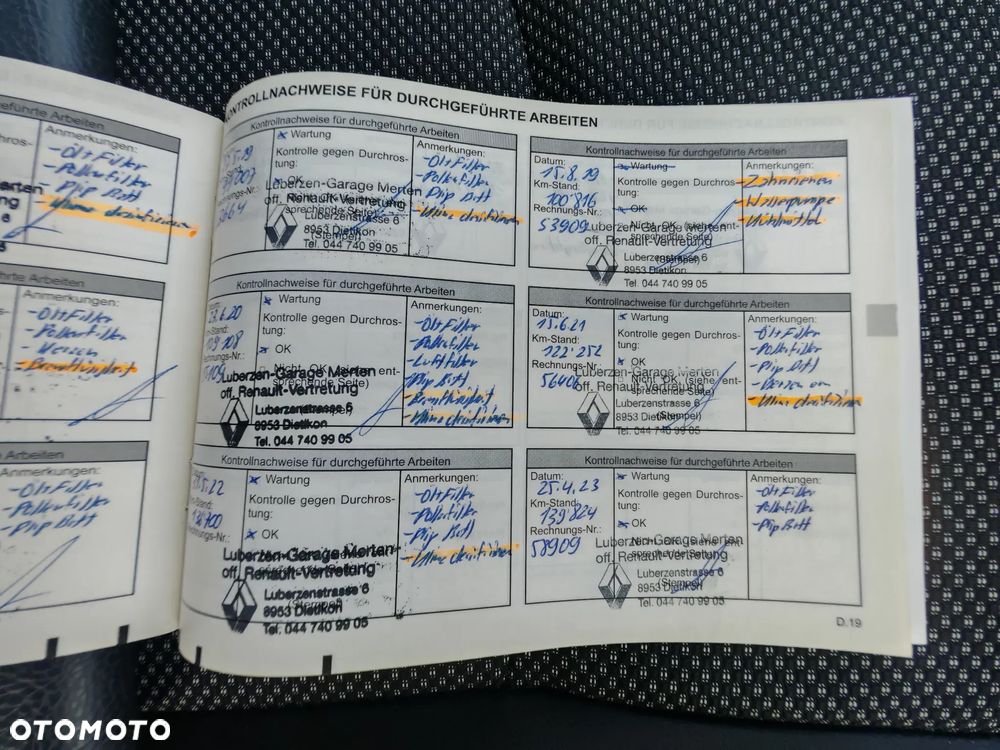 geführte Arbeiten
Anmerkungen:
-Öl+Filter
-Pollenfilter
-Plip Batt
-Klima desinfizieren
hrte Arbeiten
Anmerkungen:
-Öl+Filter
-Pollenfilter
-Kerzen
Arbeiten
Anmerkungen:
-Öl+Filter
-Pollenfilter
-Plip Batt
KONTROLLNACHWEISE FÜR DURCHGEFÜHRTE ARBEITEN
Kontrollnachweise für durchgeführte Arbeiten
Wartung
Kontrolle gegen Durchros-
tung:
OK
Luberzen-Garage Merten
off. Renault-Vertretung
Luberzenstrasse 6
8953 Dietikon
(Stempel)
Tel. 044 740 99 05
Anmerkungen:
-Öl+Filter
-Pollenfilter
-Plip Batt
-Klima desinfizieren
Kontrollnachweise für durchgeführte Arbeiten
Datum:
15.8.19
Km-Stand:
100'816
Rechnungs-Nr.:
53909
Wartung
Kontrolle gegen Durchros-
tung:
OK
Nicht OK (siehe ent-
sprechende Seite)
Luberzen-Garage Merten
off. Renault-Vertretung
(Stempel)
Luberzenstrasse 6
8953 Dietikon
Tel. 044 740 99 05
Anmerkungen:
-Zahnriemen
-Wasserpumpe
Kontrollnachweise für durchgeführte Arbeiten
Wartung
Kontrolle gegen Durchros-
tung:
OK
Nicht OK (siehe ent-
sprechende Seite)
Luberzen-Garage Merten
off. Renault-Vertretung
Luberzenstrasse 6
8953 Dietikon
Tel. 044 740 99 05
Anmerkungen:
-Öl+Filter
-Pollenfilter
-Luftfilter
-Plip Batt
-Klima desinfizieren
Kontrollnachweise für durchgeführte Arbeiten
Datum:
15.6.21
Km-Stand:
122'252
Rechnungs-Nr.:
56406
Wartung
Kontrolle gegen Durchros-
tung:
OK
Nicht OK (siehe ent-
sprechende Seite)
Luberzen-Garage Merten
off. Renault-Vertretung
Luberzenstrasse 6
8953 Dietikon
(Stempel)
Tel. 044 740 99 05
Anmerkungen:
-Öl+Filter
-Pollenfilter
-Plip Batt
-Klima desinfizieren
Kontrollnachweise für durchgeführte Arbeiten
Wartung
Kontrolle gegen Durchros-
tung:
OK
Luberzen-Garage Merten
off. Renault-Vertretung
Luberzenstrasse 6
8953 Dietikon
Tel. 044 740 99 05
Anmerkungen:
-Öl+Filter
-Pollenfilter
-Plip Batt
-Klima desinfizieren
Kontrollnachweise für durchgeführte Arbeiten
Datum:
25.4.23
Km-Stand:
139'824
Rechnungs-Nr.:
58909
Wartung
Kontrolle gegen Durchros-
tung:
OK
Luberzen-Garage Merten
off. Renault-Vertretung
Luberzenstrasse 6
8953 Dietikon
(Stempel)
Tel. 044 740 99 05
Anmerkungen:
-Öl+Filter
-Pollenfilter
-Plip Batt
D.19
OTOMOTO